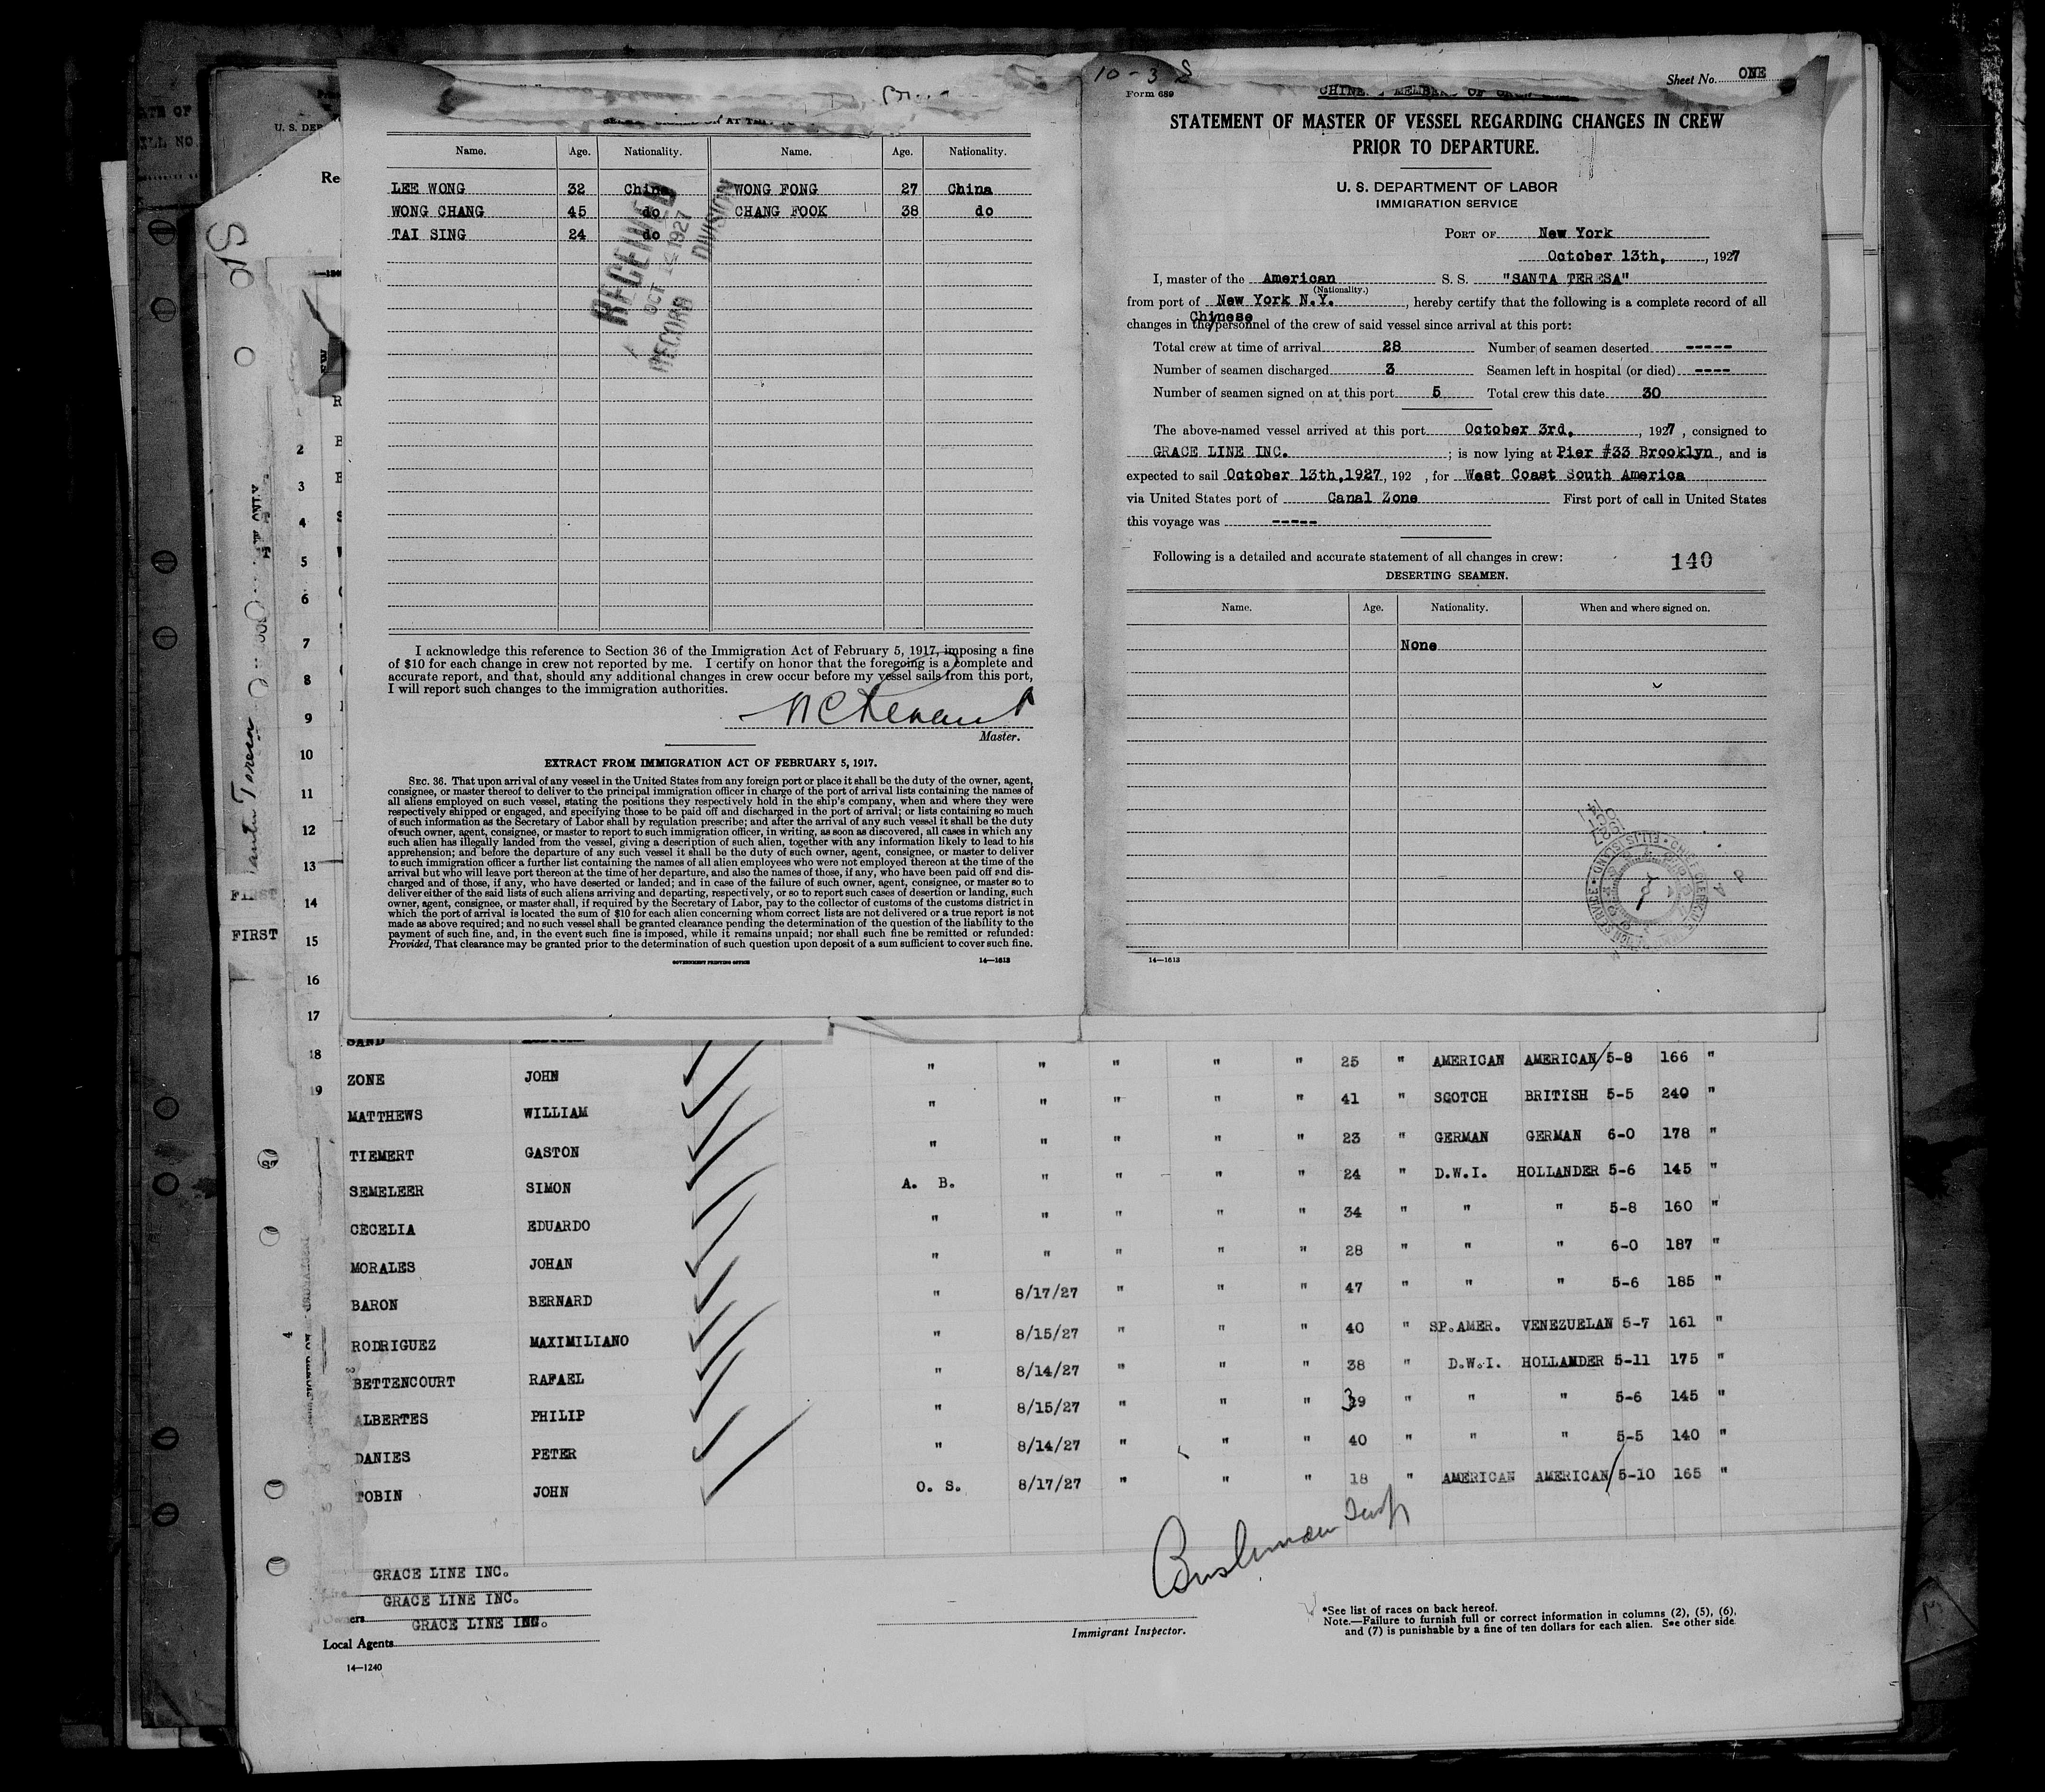 Name. Age. Nationality. Name. Age. Nationality.
LEE WONG 32 China WONG FONG 27 China
WONG CHANG 45 do CHANG FOOK 38 do
TAI SING 24 do
RECEIVED
OCT 14 1927
RECORD DIVISION
I acknowledge this reference to Section 36 of the Immigration Act of February 5, 1917, imposing a fine
of $10 for each change in crew not reported by me. I certify on honor that the foregoing is a complete and
accurate report, and that, should any additional changes in crew occur before my vessel sails from this port,
I will report such changes to the immigration authorities.
Master.
EXTRACT FROM IMMIGRATION ACT OF FEBRUARY 5, 1917.
SEC. 36. That upon arrival of any vessel in the United States from any foreign port or place it shall be the duty of the owner, agent,
consignee, or master thereof to deliver to the principal immigration officer in charge of the port of arrival lists containing the names of
all aliens employed on such vessel, stating the positions they respectively hold in the ship's company, when and where they were
respectively shipped or engaged, and specifying those to be paid off and discharged in the port of arrival; or lists containing so much
of such information as the Secretary of Labor shall by regulation prescribe; and after the arrival of any such vessel it shall be the duty
of such owner, agent, consignee, or master to report to such immigration officer, in writing, as soon as discovered, all cases in which any
such alien has illegally landed from the vessel, giving a description of such alien, together with any information likely to lead to his
apprehension; and before the departure of any such vessel it shall be the duty of such owner, agent, consignee, or master to deliver
to such immigration officer a further list containing the names of all alien employees who were not employed thereon at the time of the
arrival but who will leave port thereon at the time of her departure, and also the names of those, if any, who have been paid off and dis-
charged and of those, if any, who have deserted or landed; and in case of the failure of such owner, agent, consignee, or master so to
deliver either of the said lists of such aliens arriving and departing, respectively, or so to report such cases of desertion or landing, such
owner, agent, consignee, or master shall, if required by the Secretary of Labor, pay to the collector of customs of the customs district in
which the port of arrival is located the sum of $10 for each alien concerning whom correct lists are not delivered or a true report is not
made as above required; and no such vessel shall be granted clearance pending the determination of the question of the liability to the
payment of such fine, and, in the event such fine is imposed, while it remains unpaid; nor shall such fine be remitted or refunded:
Provided, That clearance may be granted prior to the determination of such question upon deposit of a sum sufficient to cover such fine.
GOVERNMENT PRINTING OFFICE 14—1613
10-3
Sheet No. ONE
Form 689
STATEMENT OF MASTER OF VESSEL REGARDING CHANGES IN CREW
PRIOR TO DEPARTURE.
U. S. DEPARTMENT OF LABOR
IMMIGRATION SERVICE
PORT OF New York
October 13th, , 1927
I, master of the American S. S. "SANTA TERESA"
(Nationality.)
from port of New York N.Y. , hereby certify that the following is a complete record of all
Chinese
changes in the/personnel of the crew of said vessel since arrival at this port:
Total crew at time of arrival 28 Number of seamen deserted -----
Number of seamen discharged 3 Seamen left in hospital (or died) ----
Number of seamen signed on at this port 5 Total crew this date 30
The above-named vessel arrived at this port October 3rd, , 1927 , consigned to
GRACE LINE INC. ; is now lying at Pier #33 Brooklyn , and is
expected to sail October 13th,1927 , 192 , for West Coast South America
via United States port of Canal Zone First port of call in United States
this voyage was -----
Following is a detailed and accurate statement of all changes in crew: 140
DESERTING SEAMEN.
Name. Age. Nationality. When and where signed on.
None
14—1613
2
3
4
5
6
7
8
9
10
11
12
13
14
15
16
17
18
19
FIRST
FIRST
SAND
" " " " " 25 " AMERICAN AMERICAN 5-8 166 "
ZONE JOHN " " " " " 41 " SCOTCH BRITISH 5-5 240 "
MATTHEWS WILLIAM " " " " " 23 " GERMAN GERMAN 6-0 178 "
TIEMERT GASTON A. B. " " " " 24 " D.W.I. HOLLANDER 5-6 145 "
SEMELEER SIMON " " " " " 34 " " " 5-8 160 "
CECELIA EDUARDO " " " " " 28 " " " 6-0 187 "
MORALES JOHAN " 8/17/27 " " " 47 " " " 5-6 185 "
BARON BERNARD " 8/15/27 " " " 40 " SP.AMER. VENEZUELAN 5-7 161 "
RODRIGUEZ MAXIMILIANO " 8/14/27 " " " 38 " D.W.I. HOLLANDER 5-11 175 "
BETTENCOURT RAFAEL " 8/15/27 " " " 39 " " " 5-6 145 "
ALBERTES PHILIP " 8/14/27 " " " 40 " " " 5-5 140 "
DANIES PETER O. S. 8/17/27 " " " 18 " AMERICAN AMERICAN 5-10 165 "
TOBIN JOHN
GRACE LINE INC.
GRACE LINE INC.
Owners GRACE LINE INC.
Local Agents
Immigrant Inspector.
*See list of races on back hereof.
Note.—Failure to furnish full or correct information in columns (2), (5), (6),
and (7) is punishable by a fine of ten dollars for each alien. See other side.
14—1240